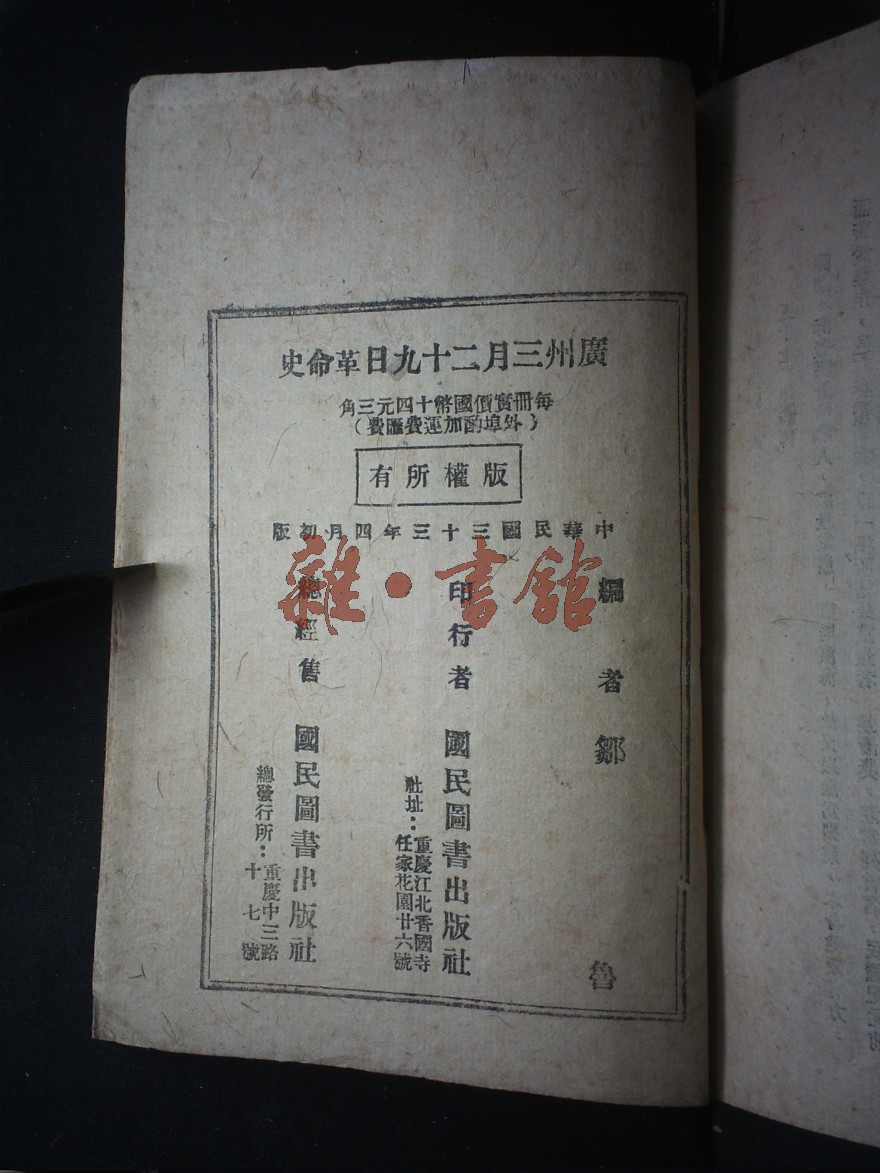 廣州三月二十九日革命史
每冊實價國幣十四元三角
（外埠酌加運費匯費）
版權所有
中華民國三十三年四月初版
編者鄒魯
印行者國民圖書出版社
社址：重慶江北香國寺
任家花園廿六號
總經售國民圖書出版社
總發行所：重慶中三路
十七號
雜·書館